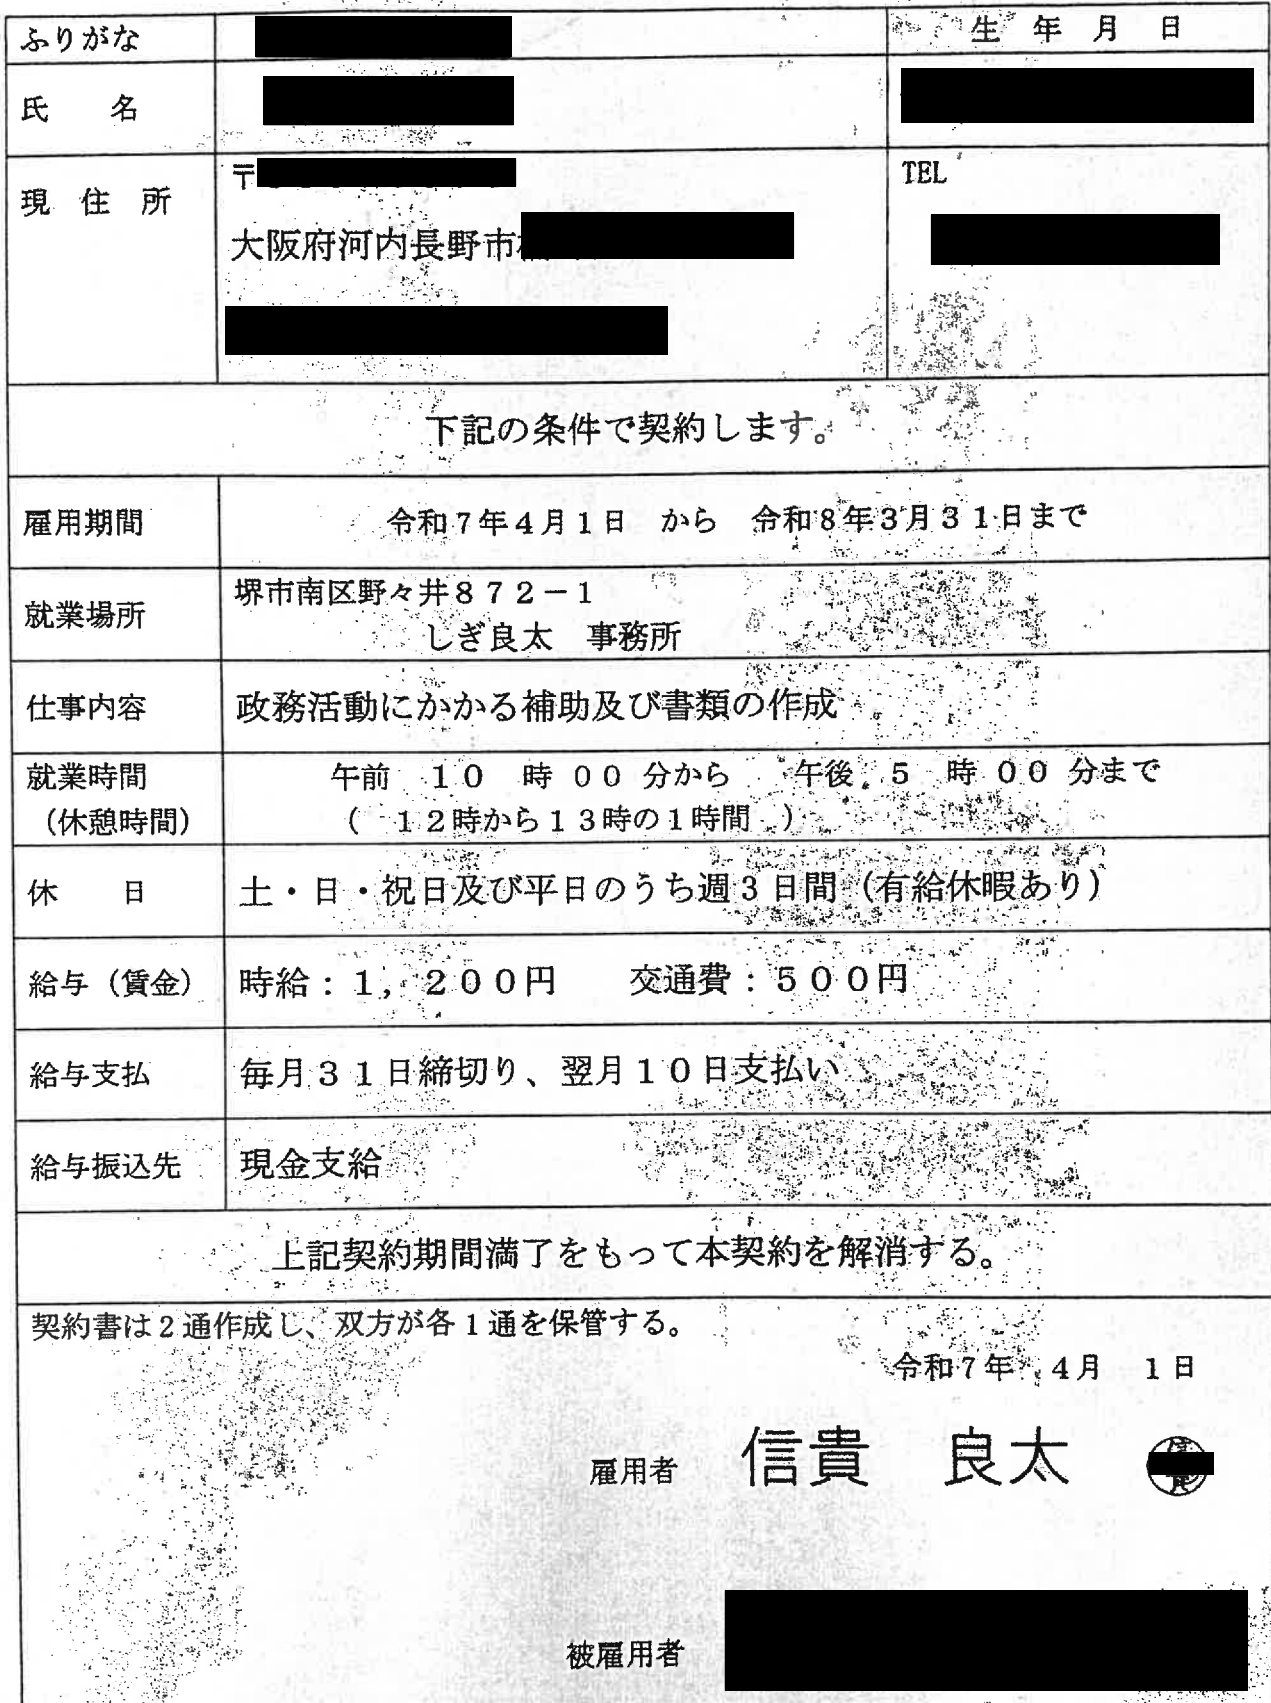 ふりがな
生 年 月 日
氏 名
現 住 所
〒
TEL
大阪府河内長野市
下記の条件で契約します。
雇用期間
令和7年4月1日 から 令和8年3月31日まで
就業場所
堺市南区野々井872-1
しぎ良太 事務所
仕事内容
政務活動にかかる補助及び書類の作成
就業時間
(休憩時間)
午前 10 時 00 分から 午後 5 時 00 分まで
( 12時から13時の1時間 )
休 日
土・日・祝日及び平日のうち週3日間(有給休暇あり)
給与(賃金)
時給:1,200円 交通費:500円
給与支払
毎月31日締切り、翌月10日支払い
給与振込先
現金支給
上記契約期間満了をもって本契約を解消する。
契約書は2通作成し、双方が各1通を保管する。
令和7年 4月 1日
雇用者 信貴 良太
被雇用者